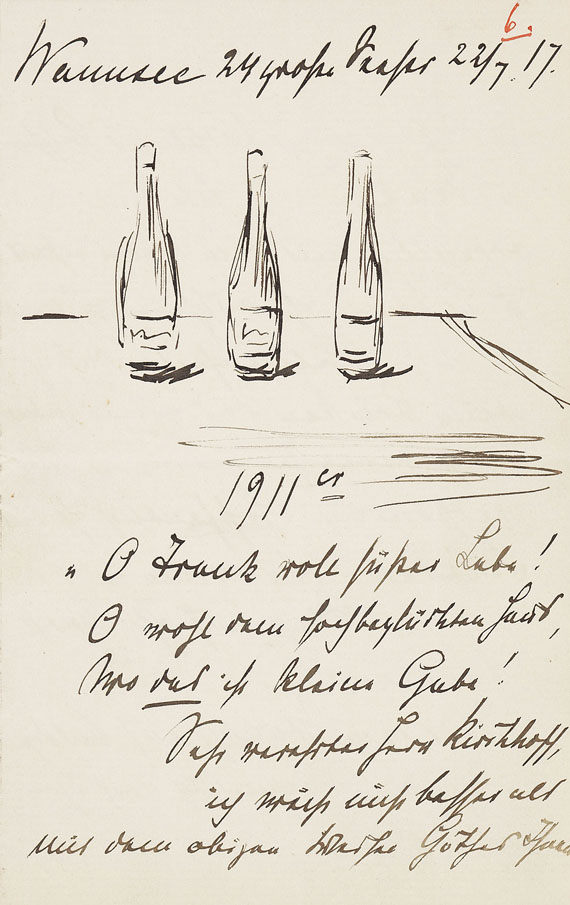 6.
Wannsee 24 große Seestr 22/7. 17.
1911er
„O Trank voll süßer Labe!
O wohl dem hochbeglückten Haus,
Wo das ist kleine Gabe!
Sehr verehrter Herr Kirchhoff,
ich weiß nichts besser als
mit dem obigen Verse Göthes Ihnen